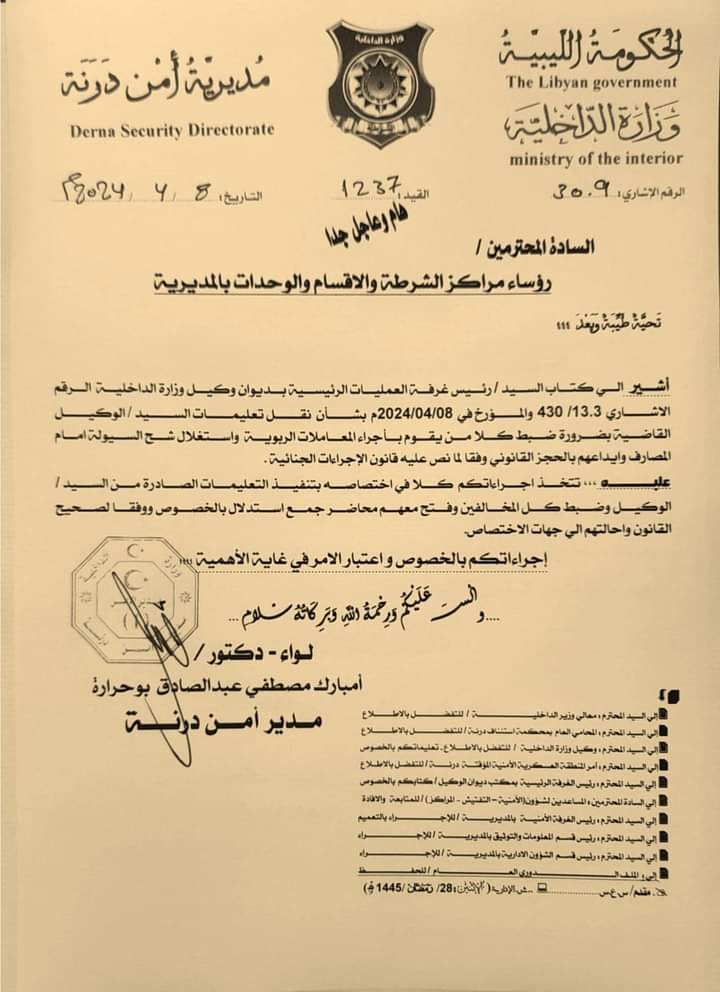 الحكومة الليبية
The Libyan government
وزارة الداخلية
ministry of the interior
وزارة الداخلية
مديرية أمن درنة
Derna Security Directorate
الرقم الإشاري: 30.9
القيد: 1237
التاريخ: 8 / 4 / 2024م
هام وعاجل جدا
السادة المحترمين /
رؤساء مراكز الشرطة والاقسام والوحدات بالمديرية
تحية طيبة وبعد ،،،
أشير الي كتاب السيد / رئيس غرفة العمليات الرئيسية بديوان وكيل وزارة الداخلية الرقم
الاشاري 13.3/ 430 والمؤرخ في 2024/04/08م بشأن نقل تعليمات السيد / الوكيل
القاضية بضرورة ضبط كلا من يقوم بأجراء المعاملات الربوية واستغلال شح السيولة امام
المصارف وايداعهم بالحجز القانوني وفقا لما نص عليه قانون الإجراءات الجنائية .
عليه ،،، تتخذ اجراءاتكم كلا في اختصاصه بتنفيذ التعليمات الصادرة من السيد /
الوكيل وضبط كل المخالفين وفتح معهم محاضر جمع استدلال بالخصوص ووفقا لصحيح
القانون واحالتهم الي جهات الاختصاص.
إجراءاتكم بالخصوص واعتبار الامر في غاية الأهمية ،،،
....والسلام عليكم ورحمة الله وبركاته ...
لواء - دكتور /
أمبارك مصطفي عبدالصادق بوحرارة
مدير أمن درنة
إلي السيد المحترم، معالي وزير الداخلية / للتفضل بالاطلاع
إلي السيد المحترم، المحامي العام بمحكمة استئناف درنة / للتفضل بالاطلاع
إلي السيد المحترم، وكيل وزارة الداخلية / للتفضل بالاطلاع. تعليماتكم بالخصوص
إلي السيد المحترم، أمر المنطقة العسكرية الأمنية المؤقتة درنة / للتفضل بالاطلاع
إلي السيد المحترم، رئيس الغرفة الرئيسية بمكتب ديوان الوكيل / كتابكم بالخصوص
إلي السادة المحترمين، المساعدين لشؤون (الأمنية – التفتيش – المراكز) / للمتابعة والافادة
إلي السيد المحترم، رئيس الغرفة الأمنية بالمديرية / للإجراء بالتعميم
إلي السيد المحترم، رئيس قسم المعلومات والتوثيق بالمديرية / للإجراء
إلي السيد المحترم، رئيس قسم الشؤون الادارية بالمديرية / للإجراء
إلي، الملف الدوري العام / للحفظ
مقدم/ س ع س ... ش الإدارية 28/ رمضان /1445